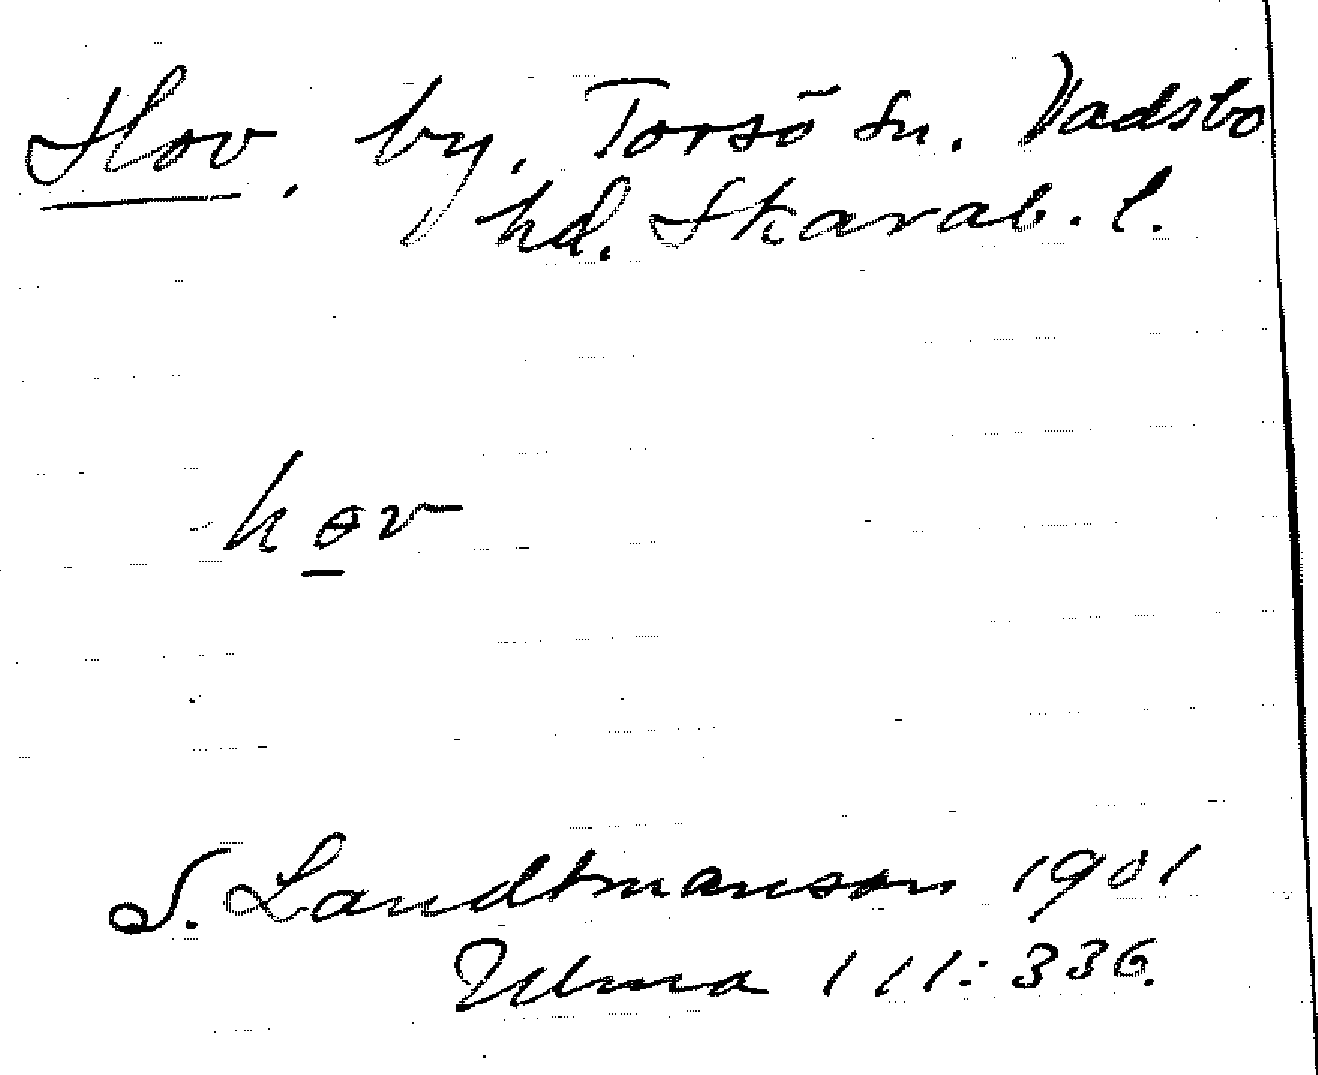 Hov, by, Torsö sn. Vadsbo
hd. Skarab. l.
hɵv
S. Landtmanson 1901
Ulma 111:336.